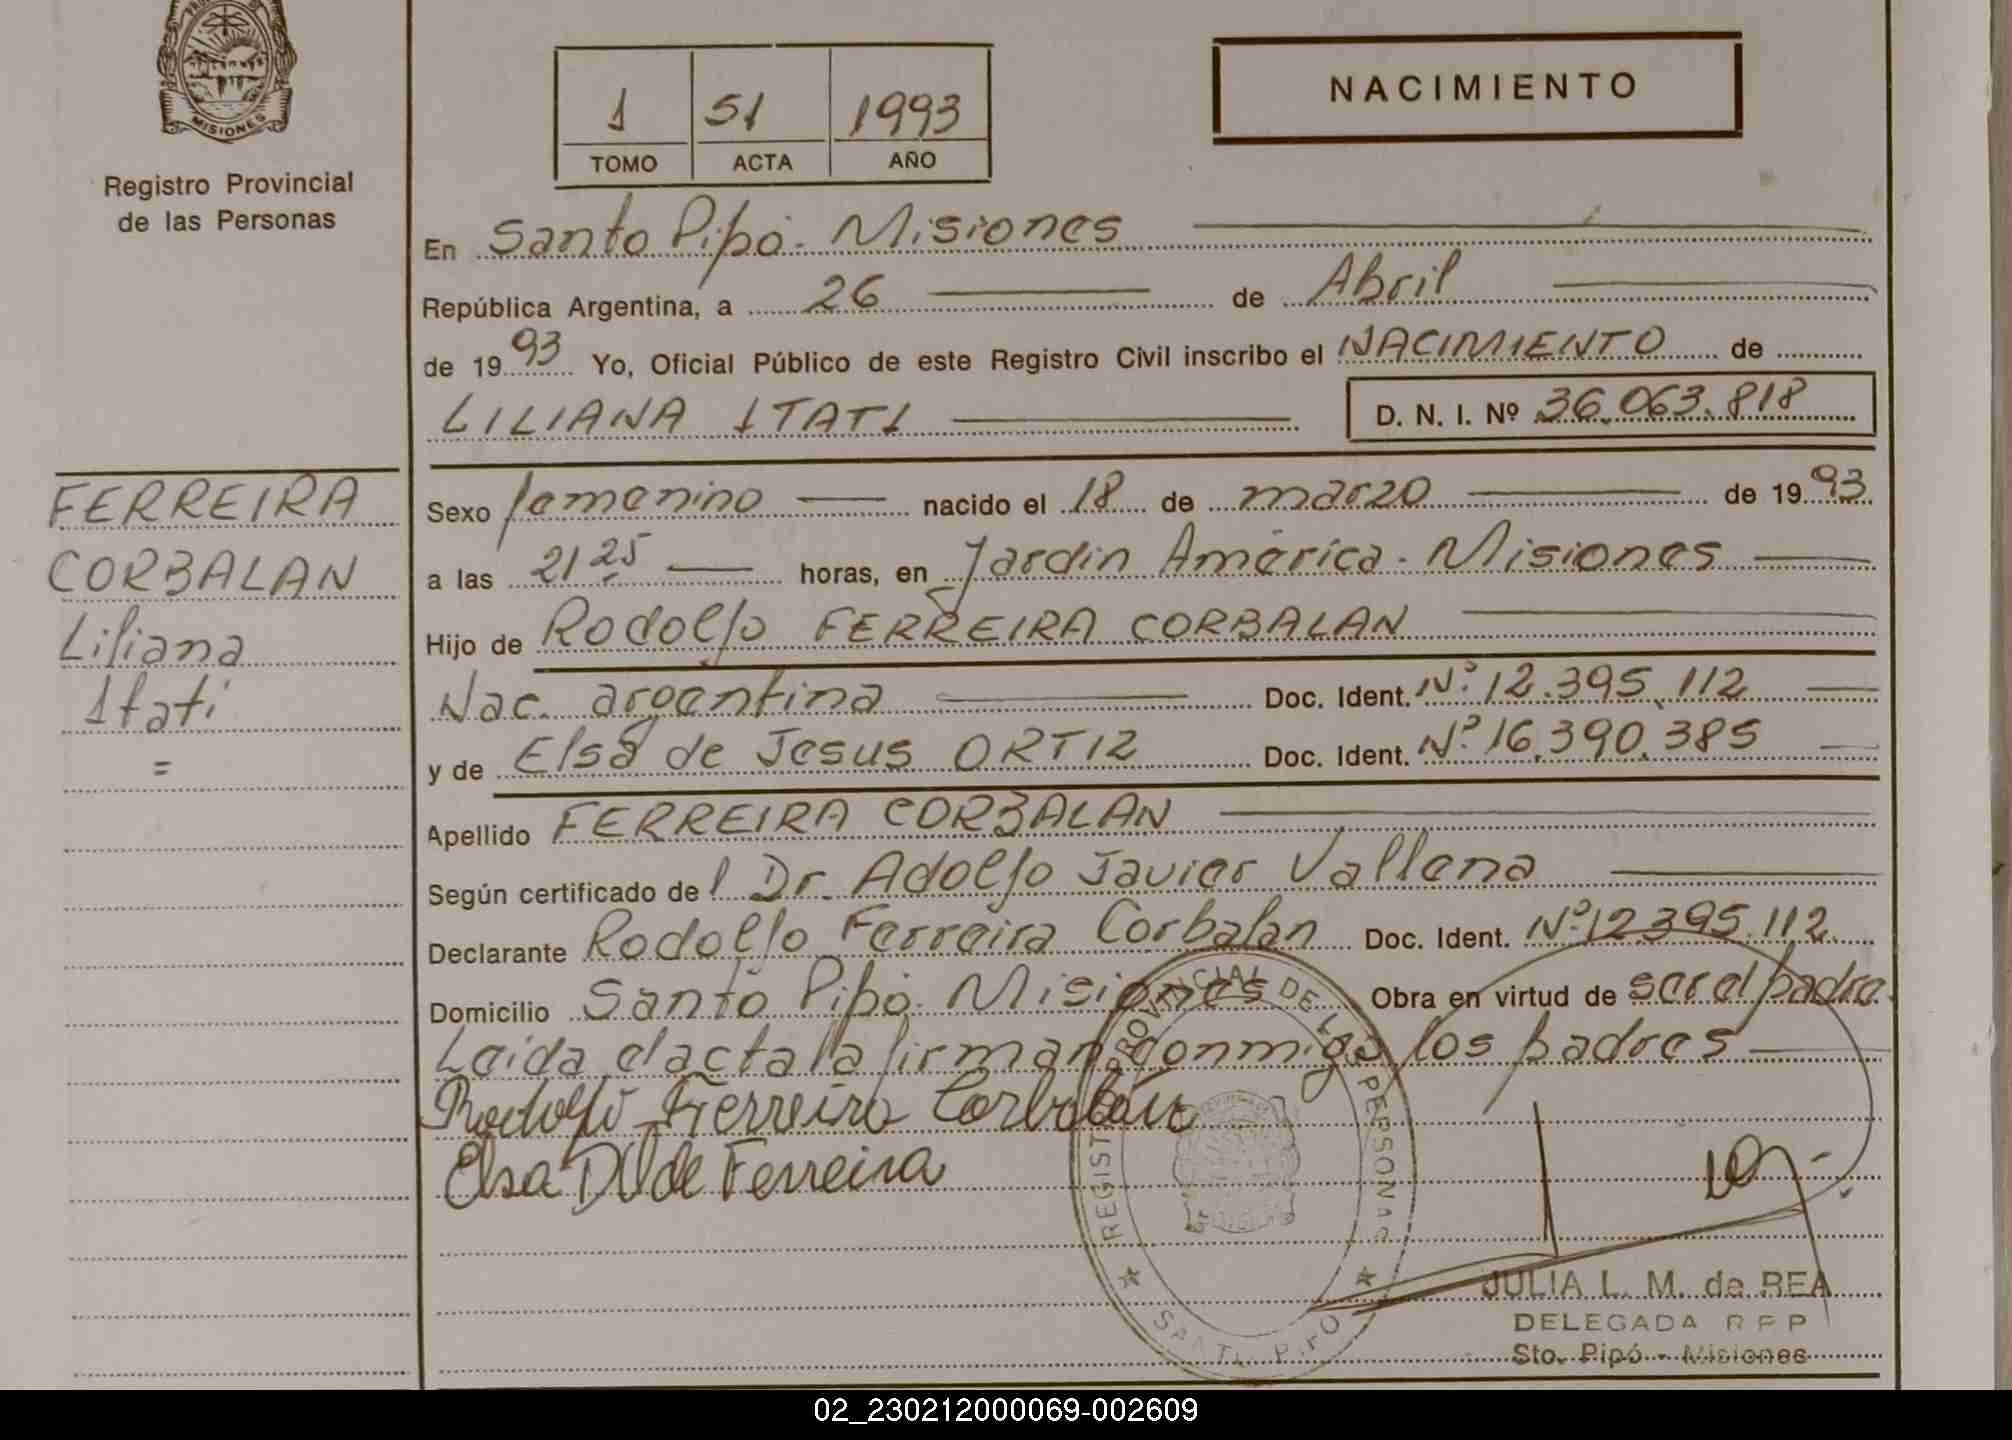 MISIONES
Registro Provincial
de las Personas
1 51 1993
TOMO ACTA AÑO
NACIMIENTO
En Santo Pipó. Misiones
República Argentina, a 26 de Abril
de 1993 Yo, Oficial Público de este Registro Civil inscribo el NACIMIENTO de
LILIANA ITATI D. N. I. Nº 36.063.818
FERREIRA
CORBALAN
Liliana
Itati
=
Sexo femenino nacido el 18 de marzo de 1993
a las 21 25 horas, en Jardin América. Misiones
Hijo de Rodolfo FERREIRA CORBALAN
Nac. argentina Doc. Ident. Nº 12.395.112
y de Elsa de Jesus ORTIZ Doc. Ident. Nº 16.390.385
Apellido FERREIRA CORBALAN
Según certificado del Dr. Adolfo Javier Vallena
Declarante Rodolfo Ferreira Corbalan Doc. Ident. Nº 12.395.112
Domicilio Santo Pipó. Misiones Obra en virtud de ser el padre.
Leida el acta la firman conmigo los padres
Rodolfo Ferreira Corbalán
Elsa de Ferreira
REGISTRO PROVINCIAL DE LAS PERSONAS
SANTO PIPO
JULIA L. M. de REA
DELEGADA R P P
Sto. Pipó - Misiones
02_230212000069-002609